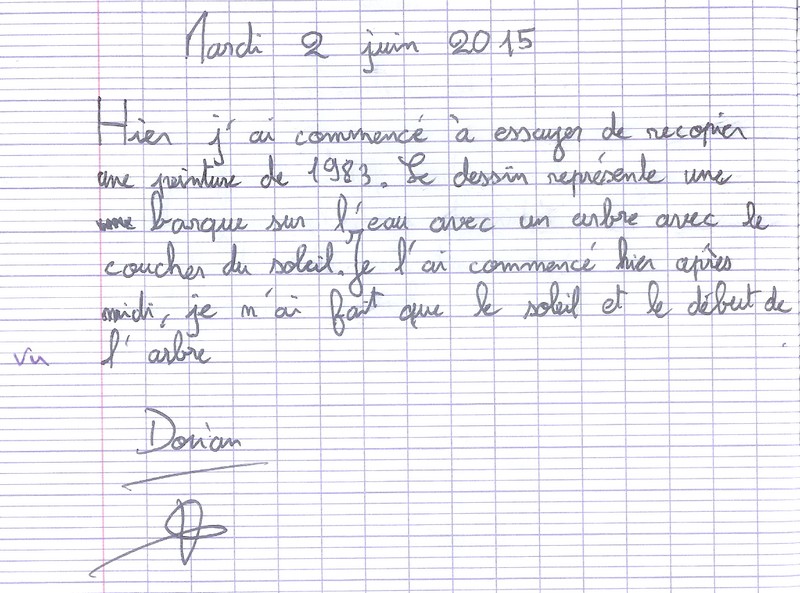 Mardi 2 juin 2015
Hier j'ai commencé à essayer de recopier
une peinture de 1983. Le dessin représente une
barque sur l'eau avec un arbre avec le
coucher du soleil. Je l'ai commencé hier après
midi, je n'ai fait que le soleil et le début de
vu l'arbre
Dorian